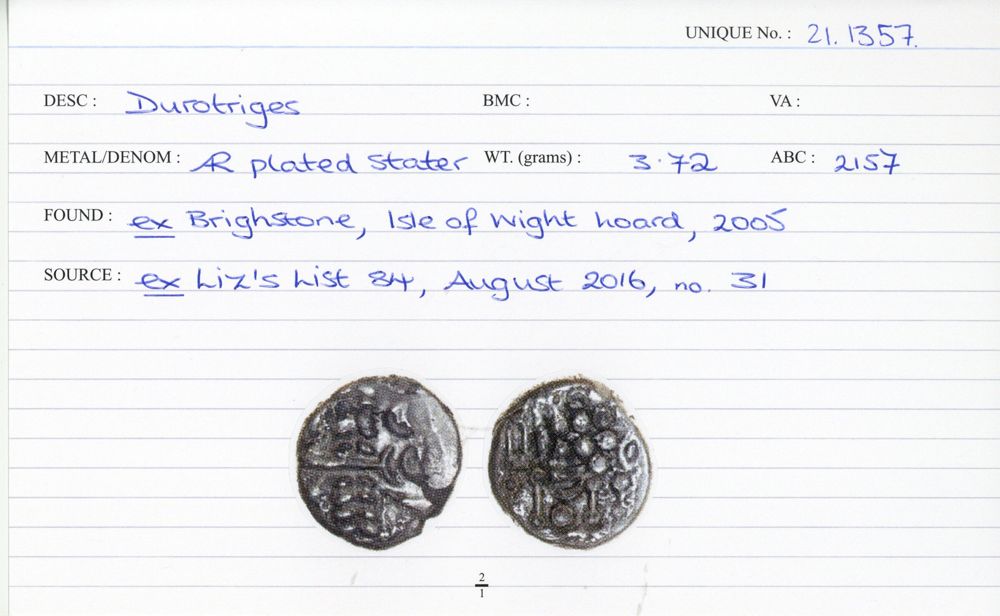 UNIQUE No. : 21.1357.
DESC : Durotriges BMC : VA :
METAL/DENOM : AR plated Stater WT. (grams) : 3.72 ABC : 2157
FOUND : ex Brighstone, Isle of Wight hoard, 2005
SOURCE : ex Liz's List 84, August 2016, no. 31
2
1